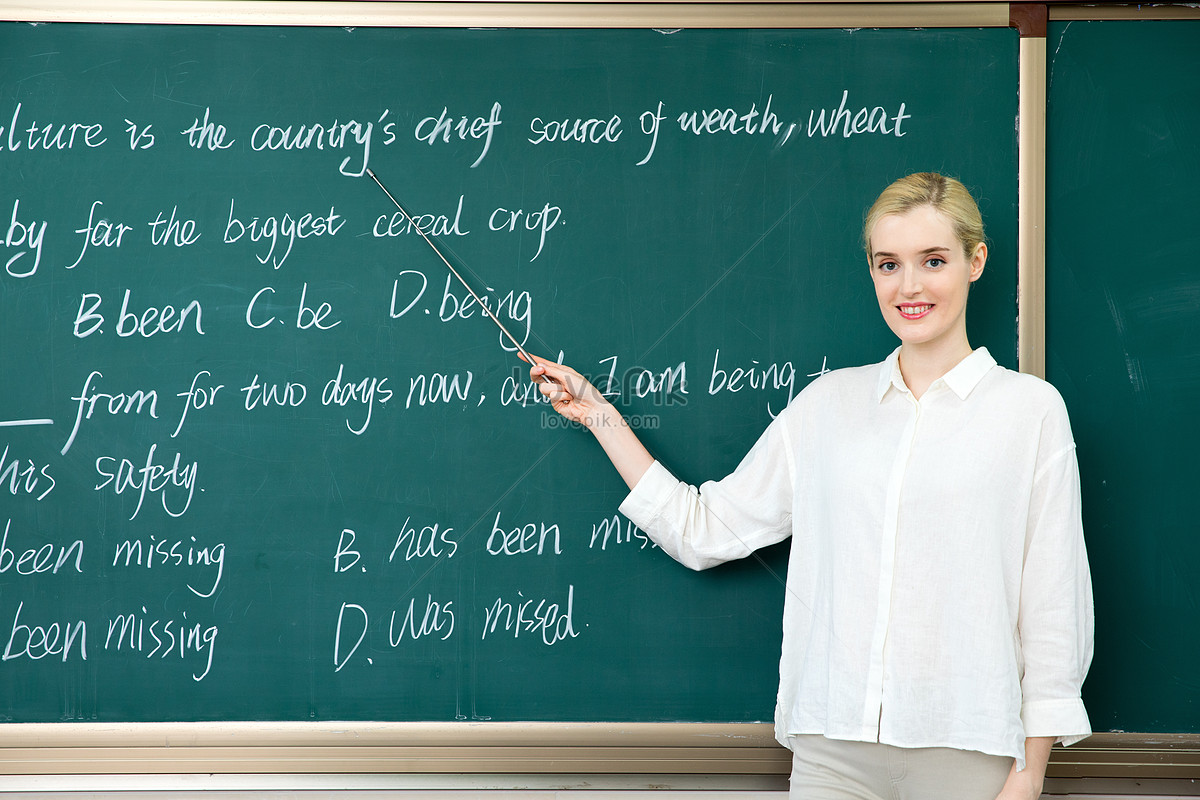 ulture is the country's chief source of weath, wheat
by far the biggest cereal crop.
B. been C. be D. being
from for two days now, and I am being
his safety.
been missing B. has been miss
been missing D. was missed.
lovepik.com